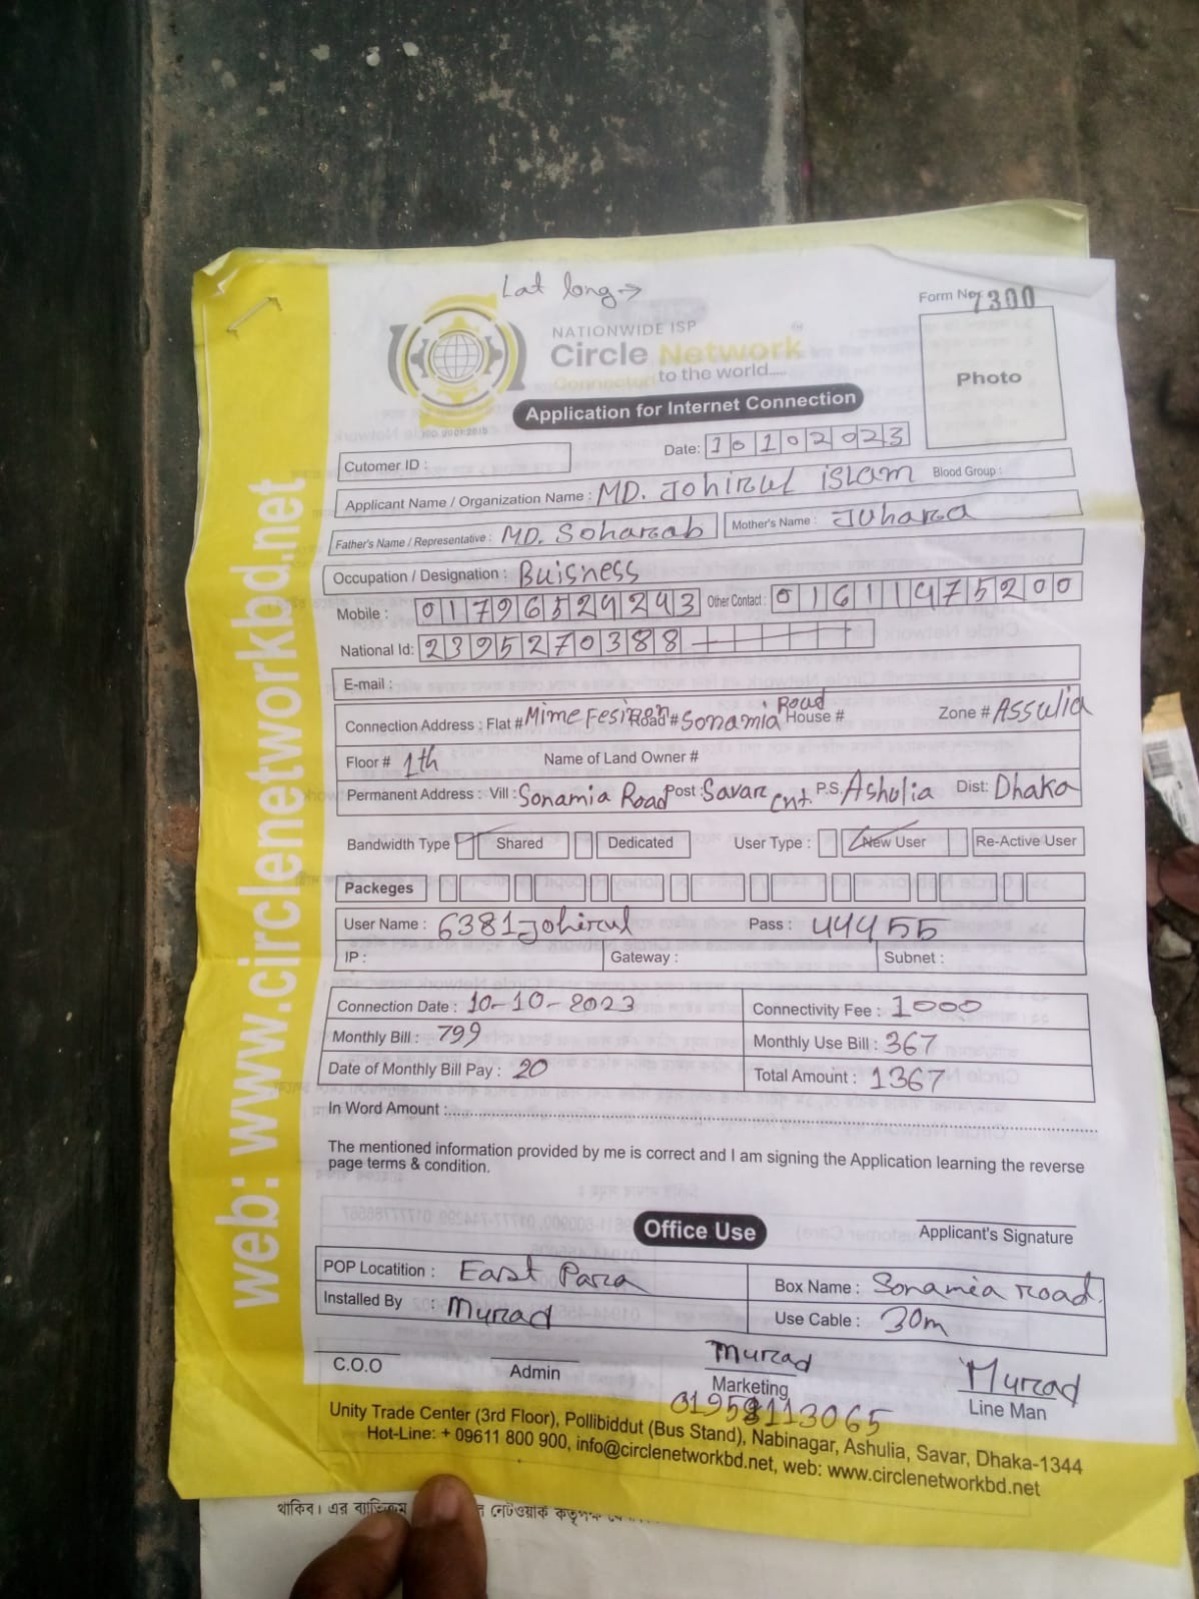 Lat long →
Form No: 7300
NATIONWIDE ISP
Circle Network
Connected to the world.....
ISO 9001:2015
Photo
Application for Internet Connection
Cutomer ID :
Date: 10102023
Applicant Name / Organization Name : MD. Johirul islam Blood Group :
Father's Name / Representative : MD. Soharab Mother's Name : Juhara
Occupation / Designation : Buisness
Mobile : 01796529293 Other Contact : 01611475200
National Id: 2395270388
E-mail :
Connection Address : Flat # Mime Road # Sonamia Road House # Zone # Assulia
Floor # 1th Name of Land Owner #
Permanent Address : Vill : Sonamia Road Post : Savar Cnt. P.S. Ashulia Dist: Dhaka
Bandwidth Type Shared Dedicated User Type : New User Re-Active User
Packeges
User Name : 6381Johirul Pass : 44455
IP : Gateway : Subnet :
Connection Date : 10-10-2023 Connectivity Fee : 1000
Monthly Bill : 799 Monthly Use Bill : 367
Date of Monthly Bill Pay : 20 Total Amount : 1367
In Word Amount :
The mentioned information provided by me is correct and I am signing the Application learning the reverse
page terms & condition.
Applicant's Signature
Office Use
POP Locatition : East Para Box Name : Sonamia road.
Installed By : Murad Use Cable : 30m
Murad Murad
C.O.O Admin Marketing Line Man
Unity Trade Center (3rd Floor), Pollibiddut (Bus Stand), Nabinagar, Ashulia, Savar, Dhaka-1344
Hot-Line: + 09611 800 900, info@circlenetworkbd.net, web: www.circlenetworkbd.net
web: www.circlenetworkbd.net
থাকিব। এর ব্যতিক্রম নেটওয়ার্ক